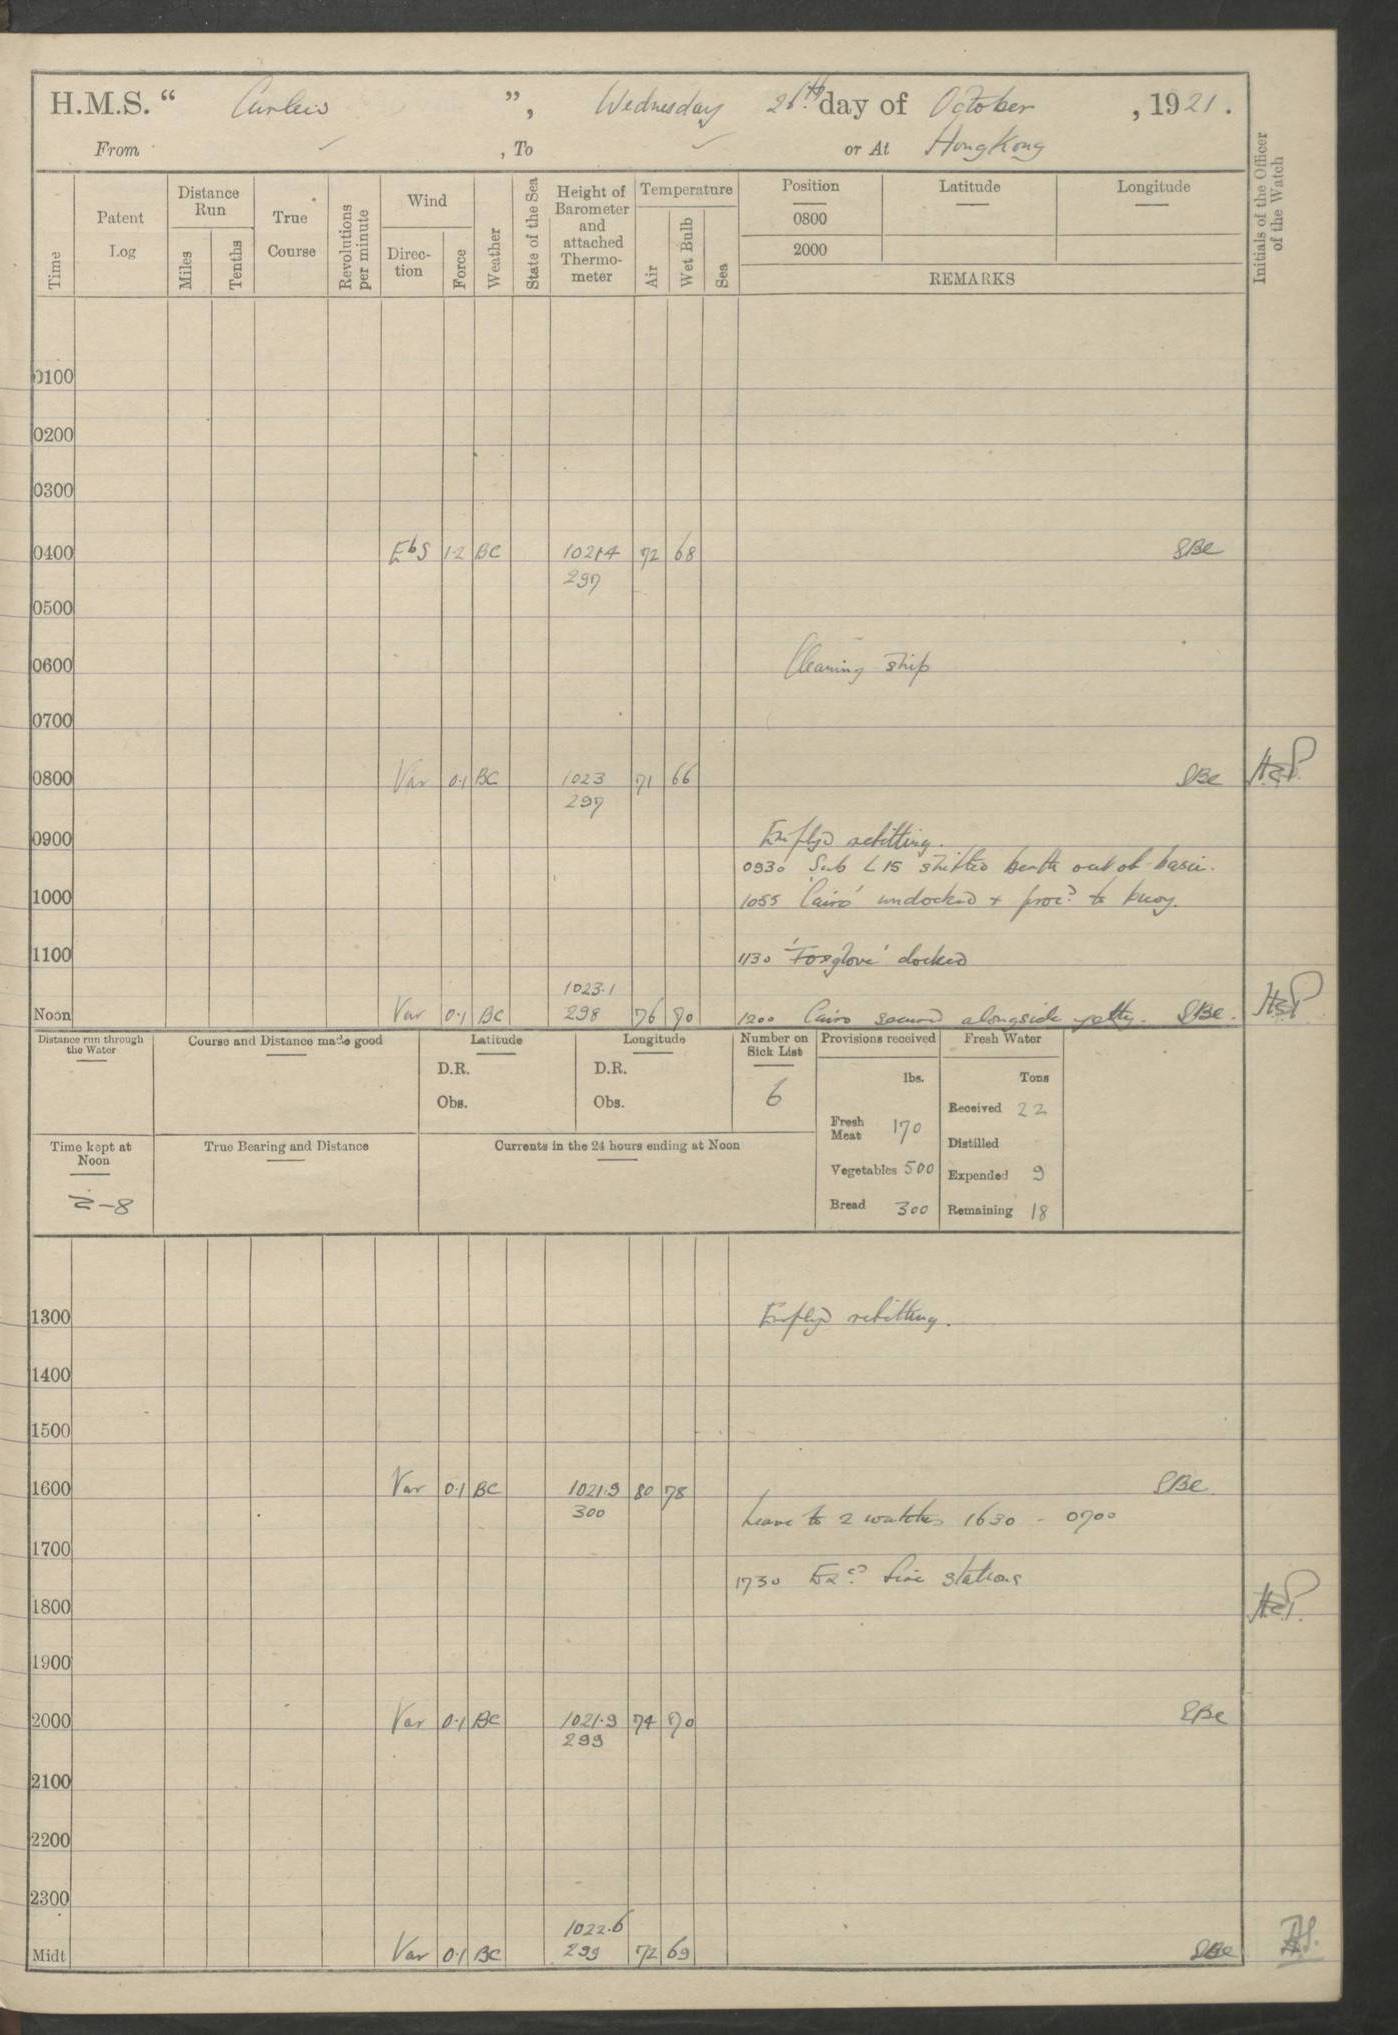 H.M.S. “ Curlew ”, Wednesday 26th day of October , 1921.
From , To or At HongKong
Time
Patent Log
Distance Run
Miles
Tenths
True Course
Revolutions per minute
Wind
Direc-tion
Force
Weather
State of the Sea
Height of Barometer and attached Thermo-meter
Temperature
Air
Wet Bulb
Sea
Position
0800
2000
Latitude
Longitude
REMARKS
Initials of the Officer of the Watch
0100
0200
0300
0400 EbS 1·2 BC 1021·4 72 68 SBC
297
0500
0600 Cleaning ship
0700
0800 Var 0·1 BC 1023 71 66 SBC
297
0900 Empl'yd refitting.
0930 Sub L15 shifted berth out of basin.
1000 1055 'Cairo' undocked + proc'd to buoy.
1100 1130 'Foxglove' docked
1023·1
Noon Var 0·1 BC 298 76 70 1200 Cairo secured alongside SBC.
Distance run through the Water
Course and Distance made good
Latitude
D.R.
Obs.
Longitude
D.R.
Obs.
Number on Sick List
6
Provisions received
lbs.
Fresh Meat 170
Vegetables 500
Bread 300
Fresh Water
Tons
Received 22
Distilled
Expended 9
Remaining 18
Time kept at Noon
-8
True Bearing and Distance
Currents in the 24 hours ending at Noon
1300 Empl'yd refitting.
1400
1500
1600 Var 0·1 BC 1021·9 80 78 SBC
300
Leave to 2 watches 1630 - 0700
1700
1730 Exd fire stations
1800
1900
2000 Var 0·1 BC 1021·9 74 70 SBC
299
2100
2200
2300
1022·6
Midt Var 0·1 BC 299 72 69 SBC